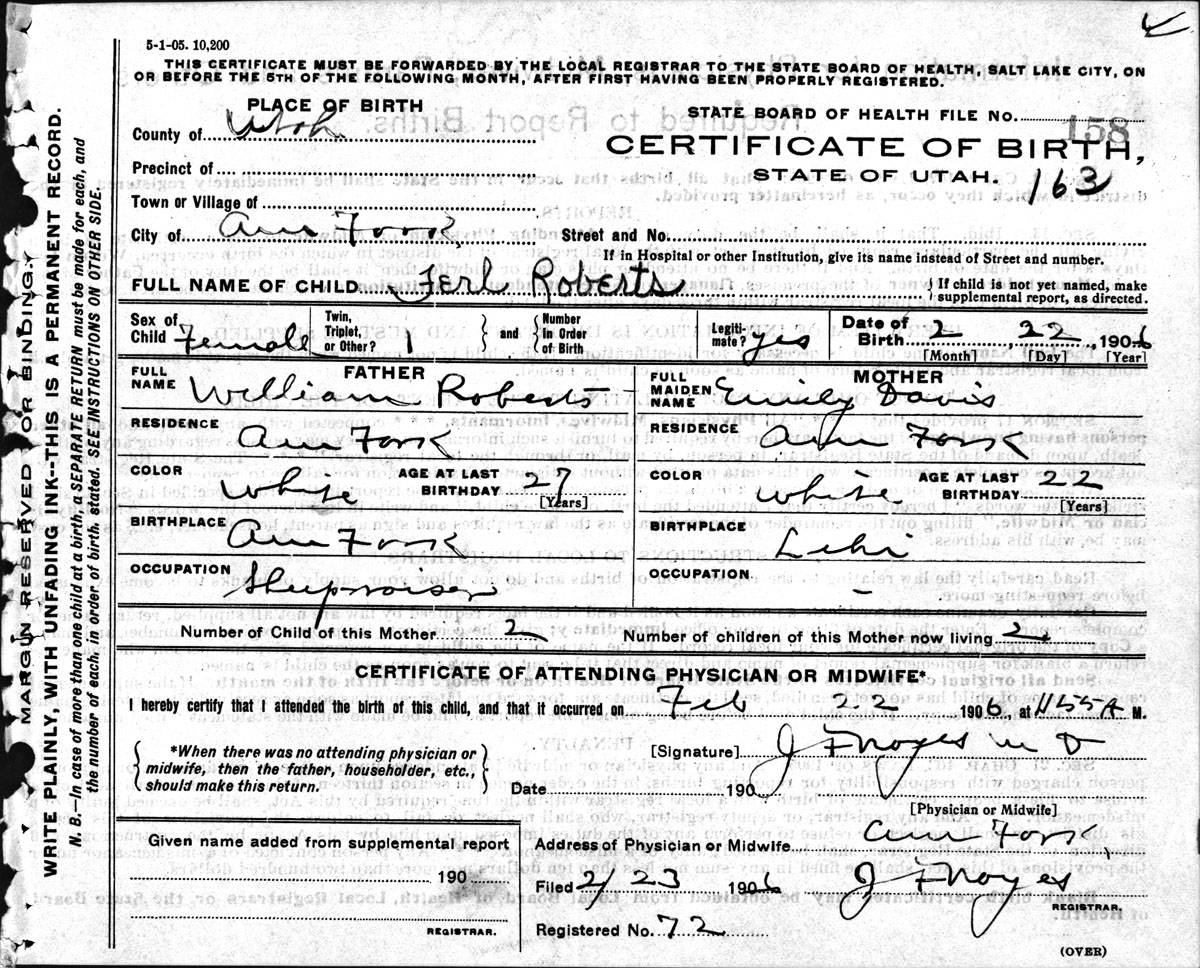 5-1-05. 10,200
THIS CERTIFICATE MUST BE FORWARDED BY THE LOCAL REGISTRAR TO THE STATE BOARD OF HEALTH, SALT LAKE CITY, ON
OR BEFORE THE 5TH OF THE FOLLOWING MONTH, AFTER FIRST HAVING BEEN PROPERLY REGISTERED.
PLACE OF BIRTH
STATE BOARD OF HEALTH FILE NO. 158
County of Utah
CERTIFICATE OF BIRTH,
Precinct of
STATE OF UTAH. 163
Town or Village of
City of Am Fork Street and No.
If in Hospital or other Institution, give its name instead of Street and number.
FULL NAME OF CHILD Ferl Roberts { If child is not yet named, make supplemental report, as directed.
Sex of Child Female Twin, Triplet, or Other? 1 } and { Number in Order of Birth Legiti-mate? yes Date of Birth 2, 22, 1906
[Month] [Day] [Year]
FATHER MOTHER
FULL NAME William Roberts FULL MAIDEN NAME Emily Davis
RESIDENCE Am Fork RESIDENCE Am Fork
COLOR White AGE AT LAST BIRTHDAY 27 [Years] COLOR White AGE AT LAST BIRTHDAY 22 [Years]
BIRTHPLACE Am Fork BIRTHPLACE Lehi
OCCUPATION Sheepraiser OCCUPATION –
Number of Child of this Mother 2 Number of children of this Mother now living 2
CERTIFICATE OF ATTENDING PHYSICIAN OR MIDWIFE*
I hereby certify that I attended the birth of this child, and that it occurred on Feb 22 1906, at 1155 A M.
{ *When there was no attending physician or midwife, then the father, householder, etc., should make this return. }
[Signature] J F Noyes M D
Date 190
[Physician or Midwife]
Given name added from supplemental report
Address of Physician or Midwife Am Fork
190
Filed 2/23 1906 J F Noyes
REGISTRAR.
REGISTRAR.
Registered No. 72
(OVER)
MARGIN RESERVED FOR BINDING.
WRITE PLAINLY, WITH UNFADING INK--THIS IS A PERMANENT RECORD.
N. B.—In case of more than one child at a birth a SEPARATE RETURN must be made for each, and
the number of each, in order of birth, stated. SEE INSTRUCTIONS ON OTHER SIDE.